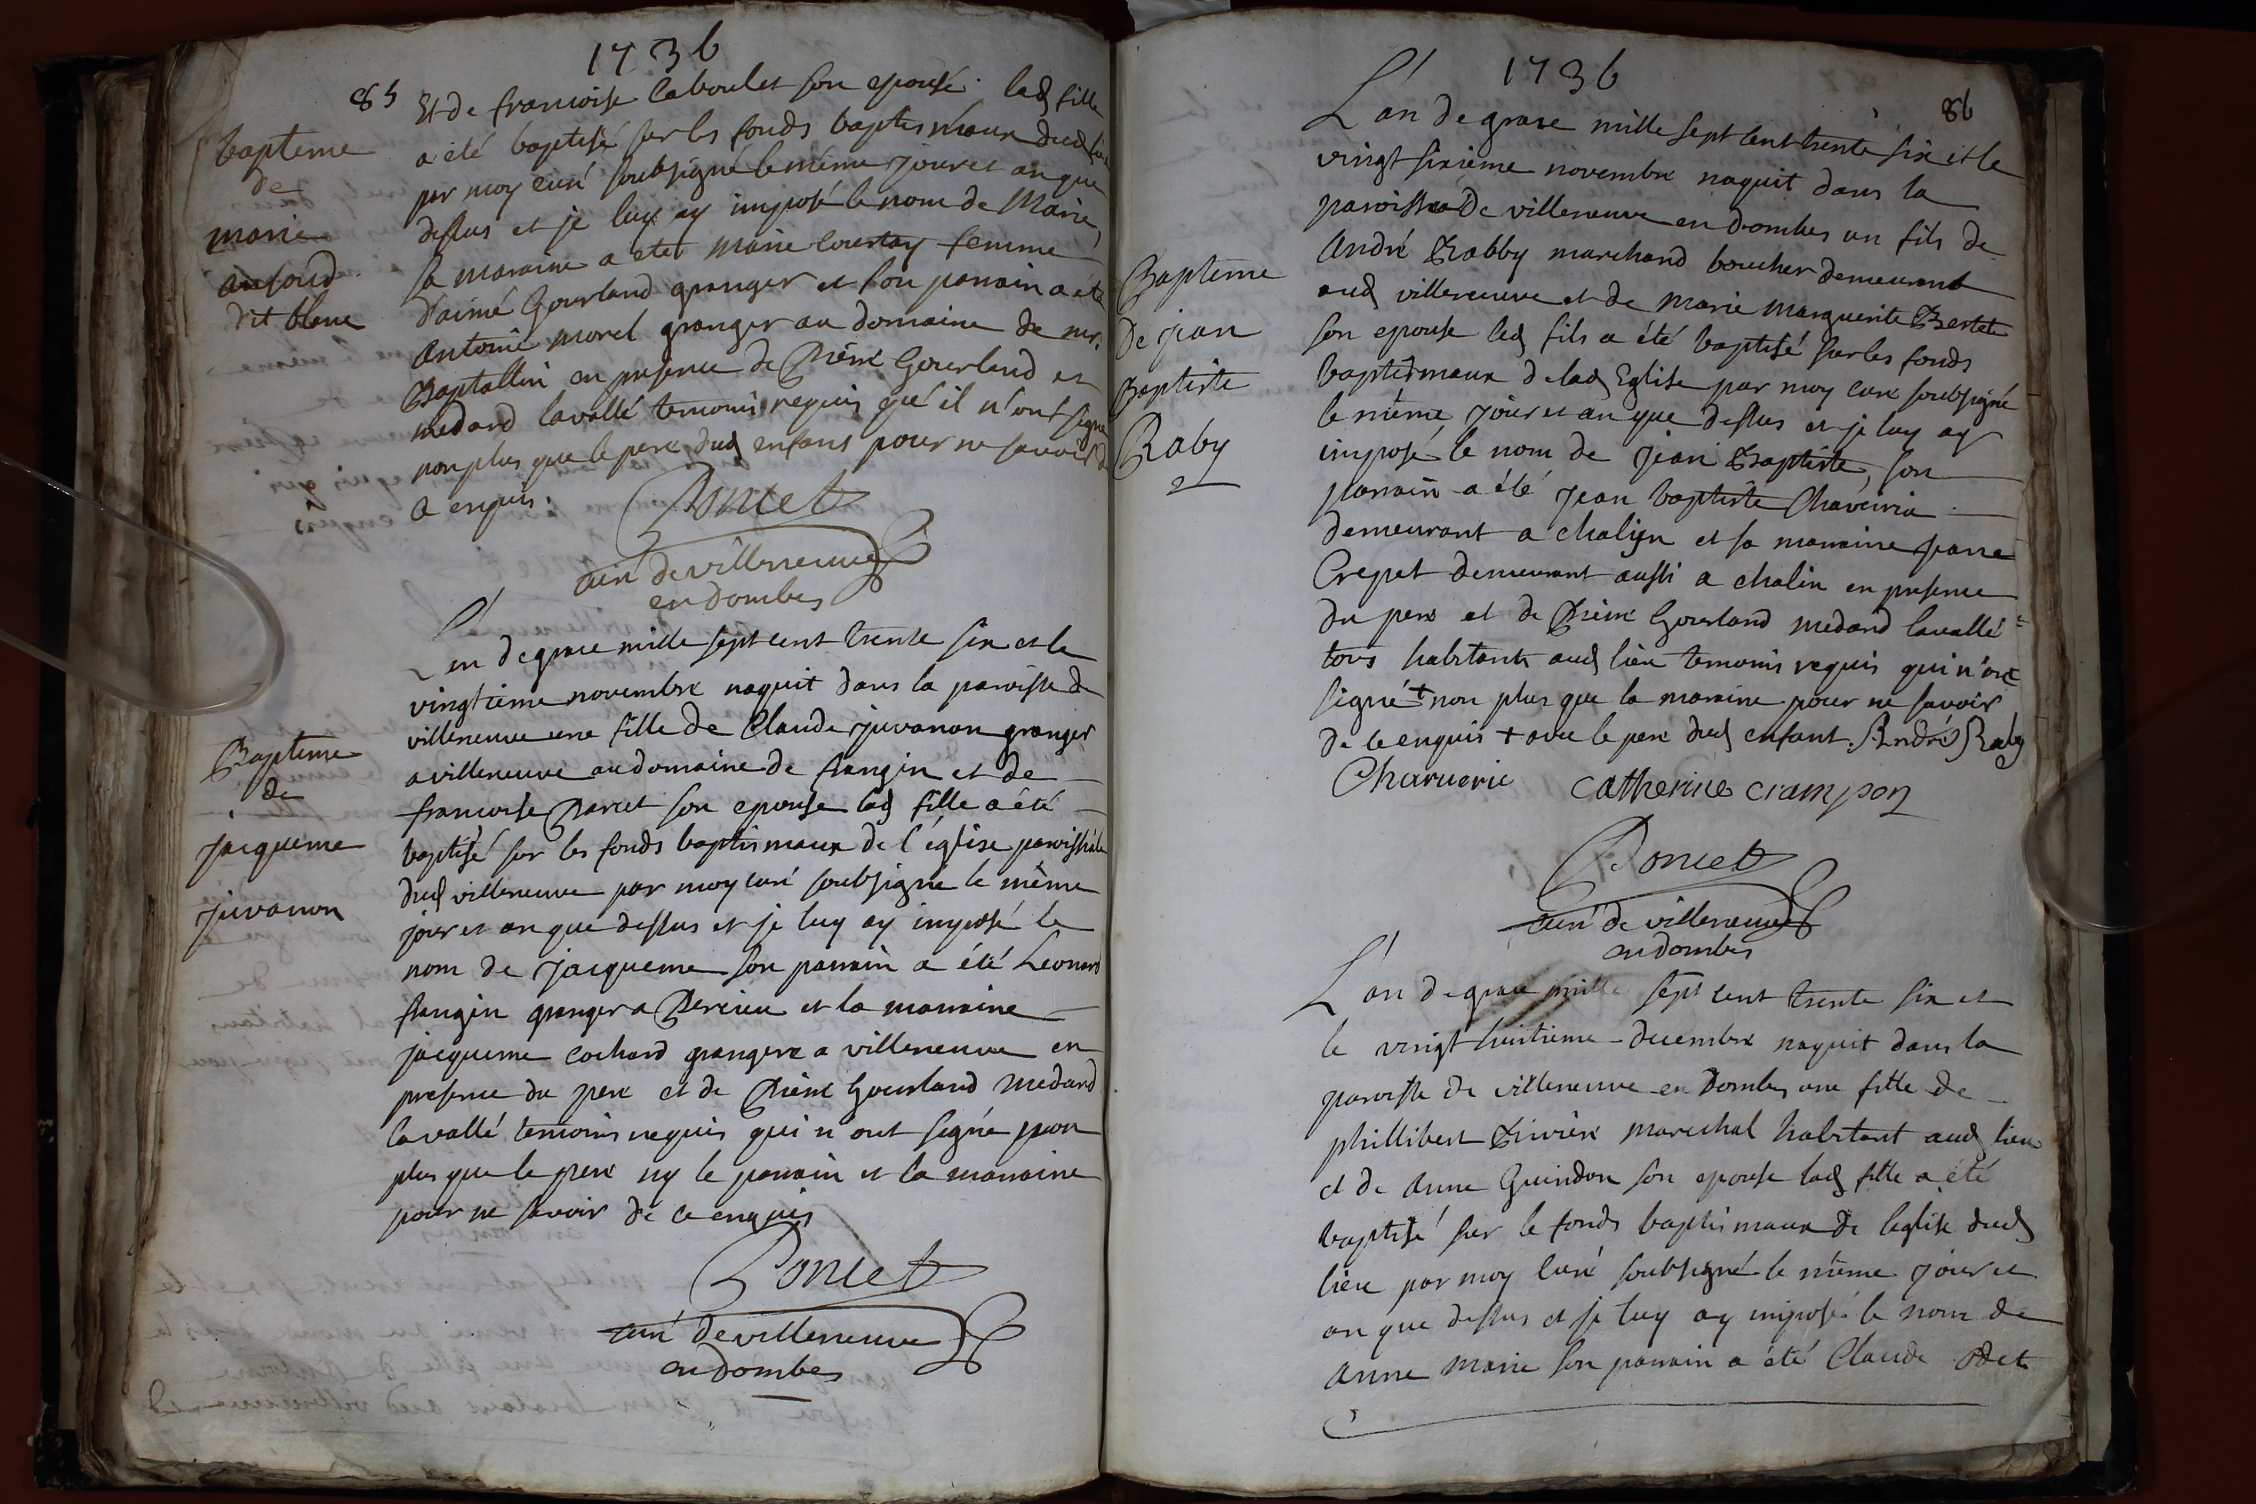 1736
85
Bapteme
de
marie
dit blanc
Et de francoise Caboulet son epouse lad fille
a été baptisé sur les fonds baptismaux dud lieu
par moy curé soubsigné le même jour et an que
dessus et je luy ay imposé le nom de Marie,
sa maraine a eté marie Courtay femme
d'aimé Gourland granger et son parrain a été
antoine morel granger au domaine de mr.
Baptallin en presence de Pierre Gourland et
medard lavallé temoins requis qui n'ont signé
non plus que le pere dud enfans pour ne savoir de
a enquis.
Poncet
curé de villeneuve
en dombes
Bapteme
de
jacqueme
juvanon
L'an de grace mille sept cent trente six et le
vingtieme novembre naquit dans la paroisse de
villeneuve une fille de Claude juvanon granger
a villeneuve au domaine de flangin et de
francoise Parret son epouse lad fille a été
baptisé sur les fonds baptismaux de l'église paroissiale
dud villeneuve par moy curé soubsigné le même
jour et an que dessus et je luy ay imposé le
nom de jacqueme son parrain a été Leonard
flangin granger a Percieu et la marraine
jacqueme cochard grangere a villeneuve en
presence du pere et de Pierre Gourland medard
lavallé temoins requis qui n'ont signé non
plus que le pere ny le parrain et la marraine
pour ne savoir de ce enquis
Poncet
curé de villeneuve
en dombes
1736
86
Bapteme
De jean
Baptiste
Raby
L'an de grace mille sept cent trente six et le
vingt sixieme novembre naquit dans la
paroisse De villeneuve en dombes un fils de
André Rabby marchand boucher demeurant
aud villeneuve et de marie marguerite Bertet
son epouse led fils a été baptisé sur les fonds
baptismaux de lad Eglise par moy curé soubsigné
le même jour et an que dessus et je luy ay
imposé le nom de jean Baptiste, son
parrain a été jean baptiste Chaveiria
demeurant a chalin et sa marraine jeanne
Crepet demeurant aussi a chalin en presence
du pere et de Pierre Gourland medard lavallé
tous habitants aud lieu temoins requis qui n'ont
signé + non plus que la maraine pour ne savoir
de ce enquis + avec le pere dud enfant. André Raby
Charverie Catherine crampon
Poncet
curé de villeneuve
en dombes
L'an de grace mille sept cent trente six et
le vingt huitieme decembre naquit dans la
paroisse de villeneuve en Dombes une fille de
phillibert Riviere marechal habitant aud lieu
et de anne Guindon son epouse lad fille a été
baptisé sur le fonds baptismaux de leglise dud
lieu par moy curé soubsigné le même jour et
an que dessus et je luy ay imposé le nom de
anne marie son parrain a été Claude Odet